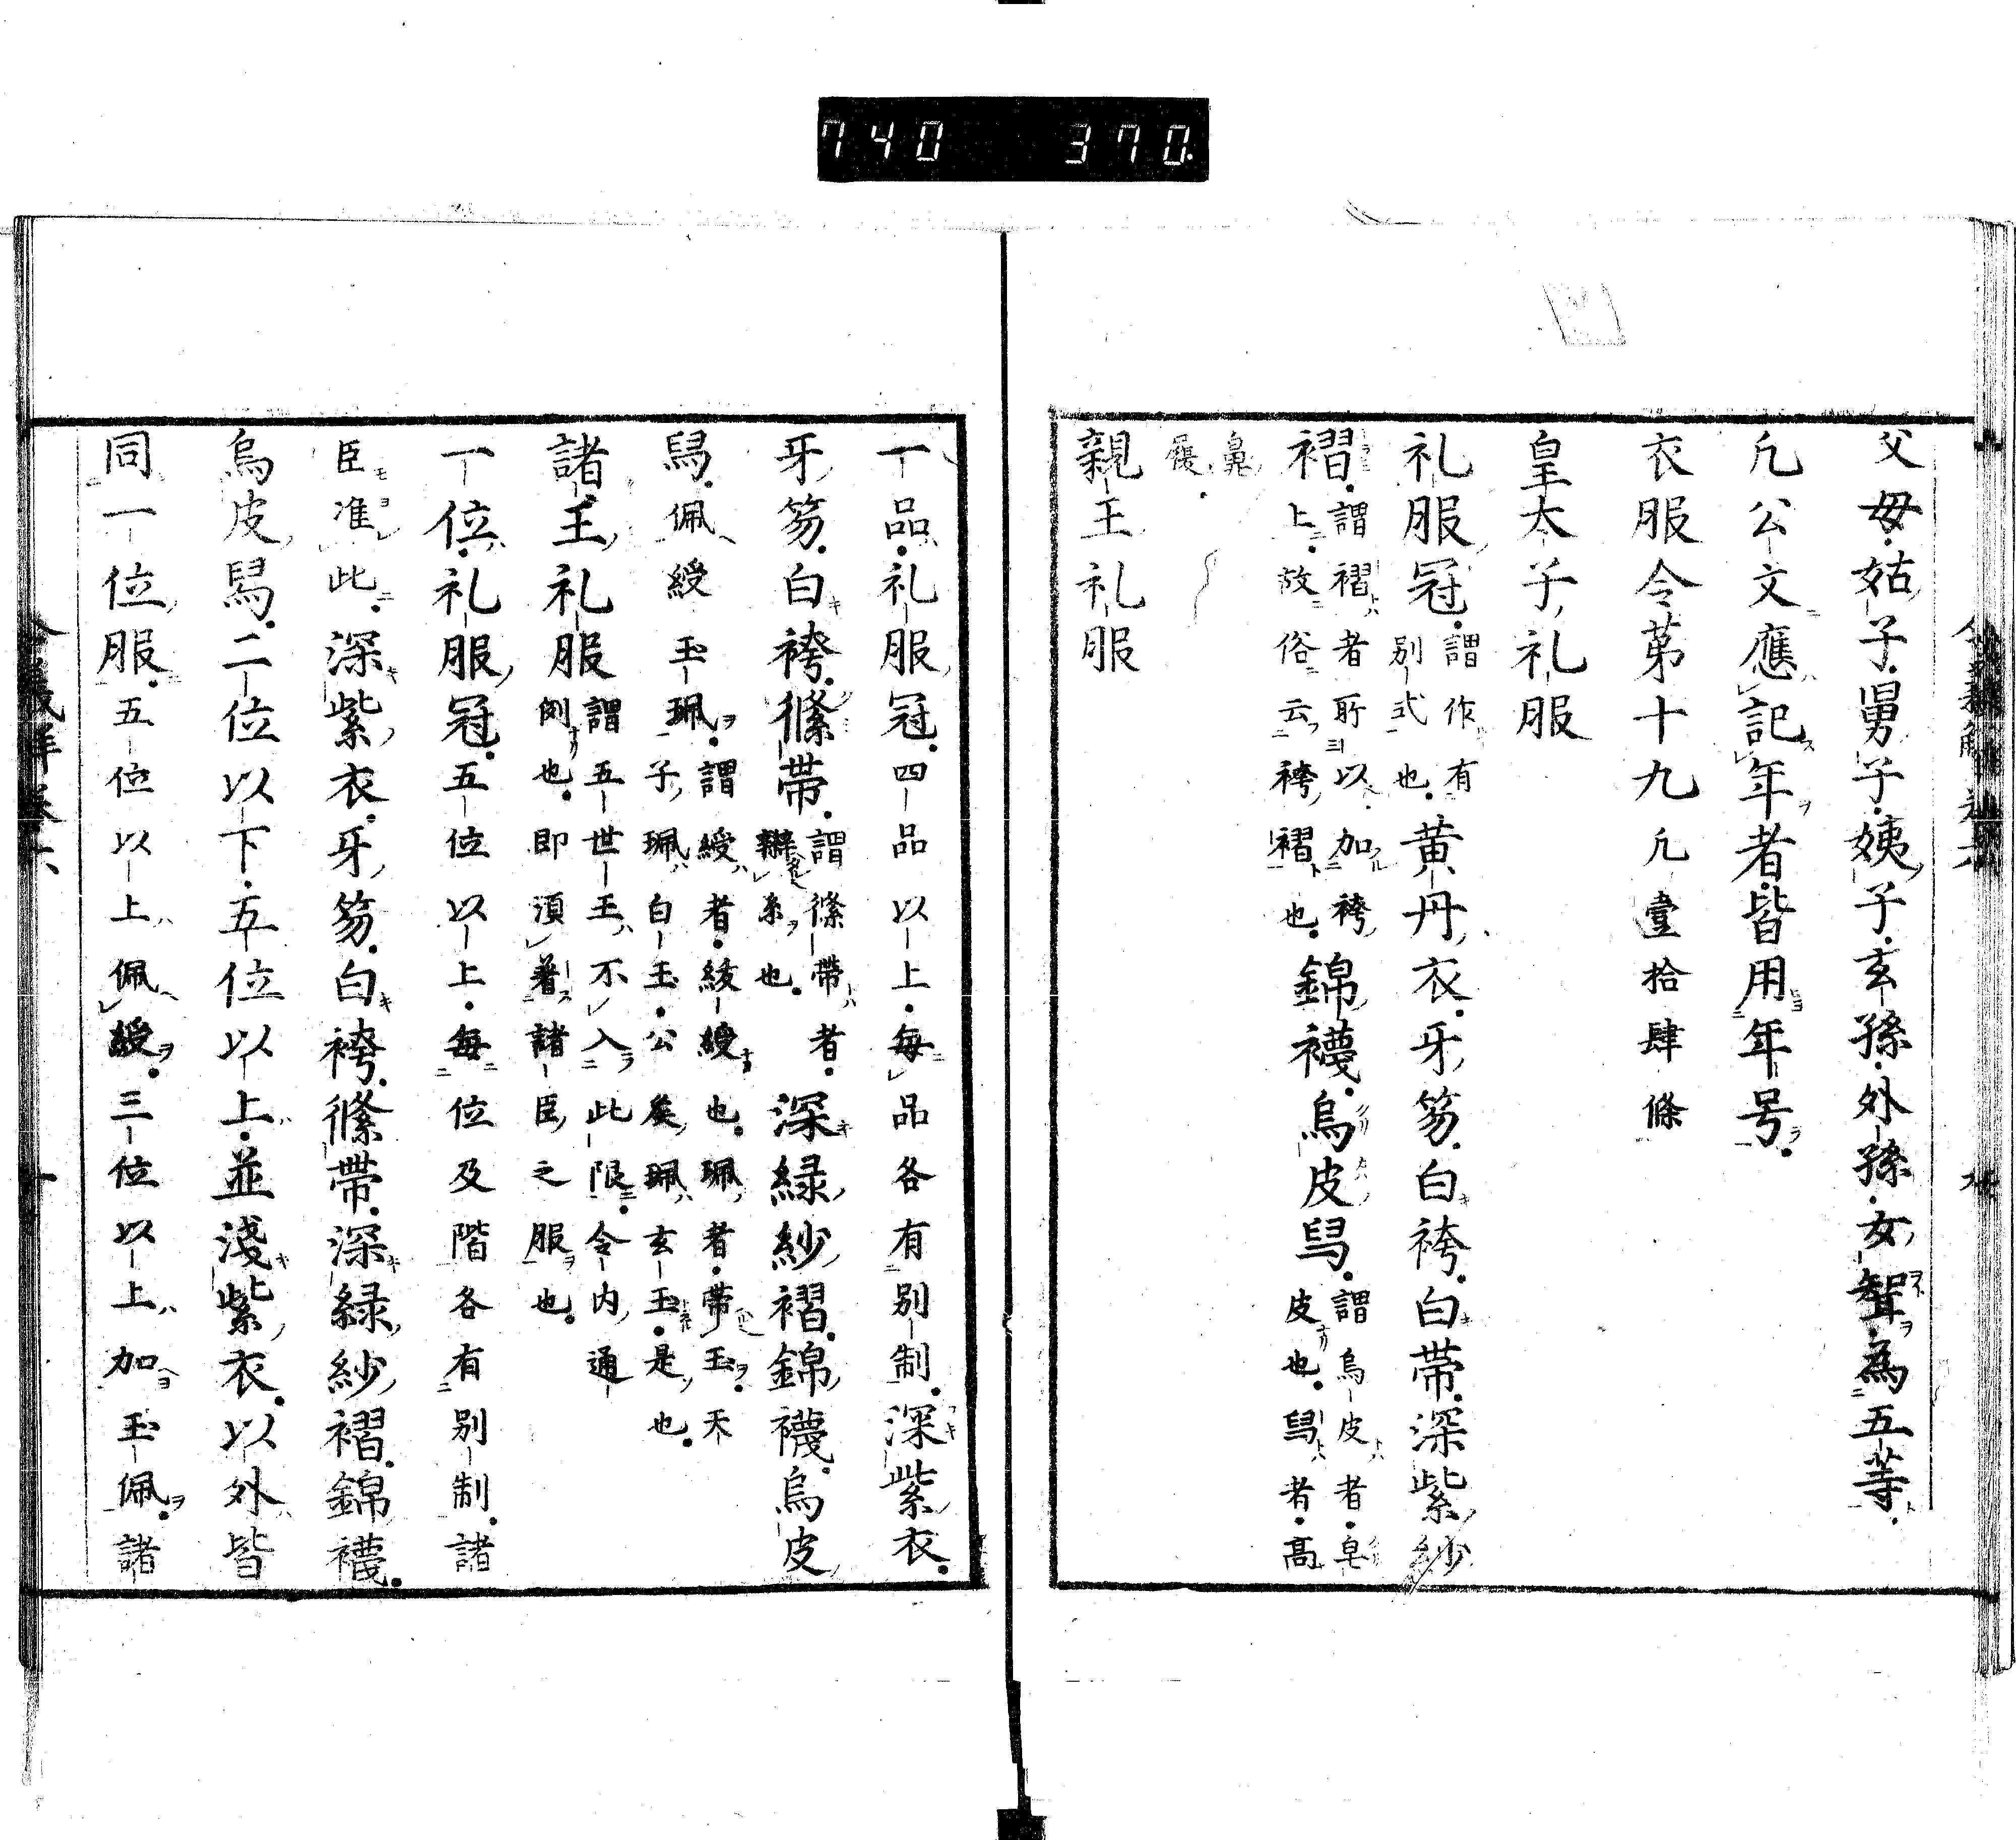 740 370.
父母。姑子。舅子。姨子。玄孫。外孫。女聟。為五等。
凢公文應記年者。皆用年号。
衣服令第十九 凢壹拾肆條
皇太子礼服
礼服冠。謂作有別式也。黄丹衣。牙笏。白袴。白帯。深紫紗
褶。謂褶者所以加袴上。故俗云袴褶也。錦襪。烏皮舃。謂烏皮者。皂皮也。舃者。髙
鼻履。
親王礼服
一品。礼服冠。四品以上。每品各有別制。深紫衣。
牙笏。白袴。絛帯。謂絛帯者。辮糸也。深緑紗褶。錦襪。烏皮
舄。佩綬玉珮。謂綬者。綾綬也。珮者。帯玉。天子珮白玉。公矦珮玄玉。是也。
諸王礼服 謂五世王不入此限。令内通例也。即須著諸臣之服也。
一位。礼服冠。五位以上。每位及階各有別制。諸
臣准此。深紫衣。牙笏。白袴。絛帯。深緑紗褶。錦襪。
烏皮舄。二位以下。五位以上。並淺紫衣。以外皆
同一位服。五位以上佩綬。三位以上加玉佩。諸